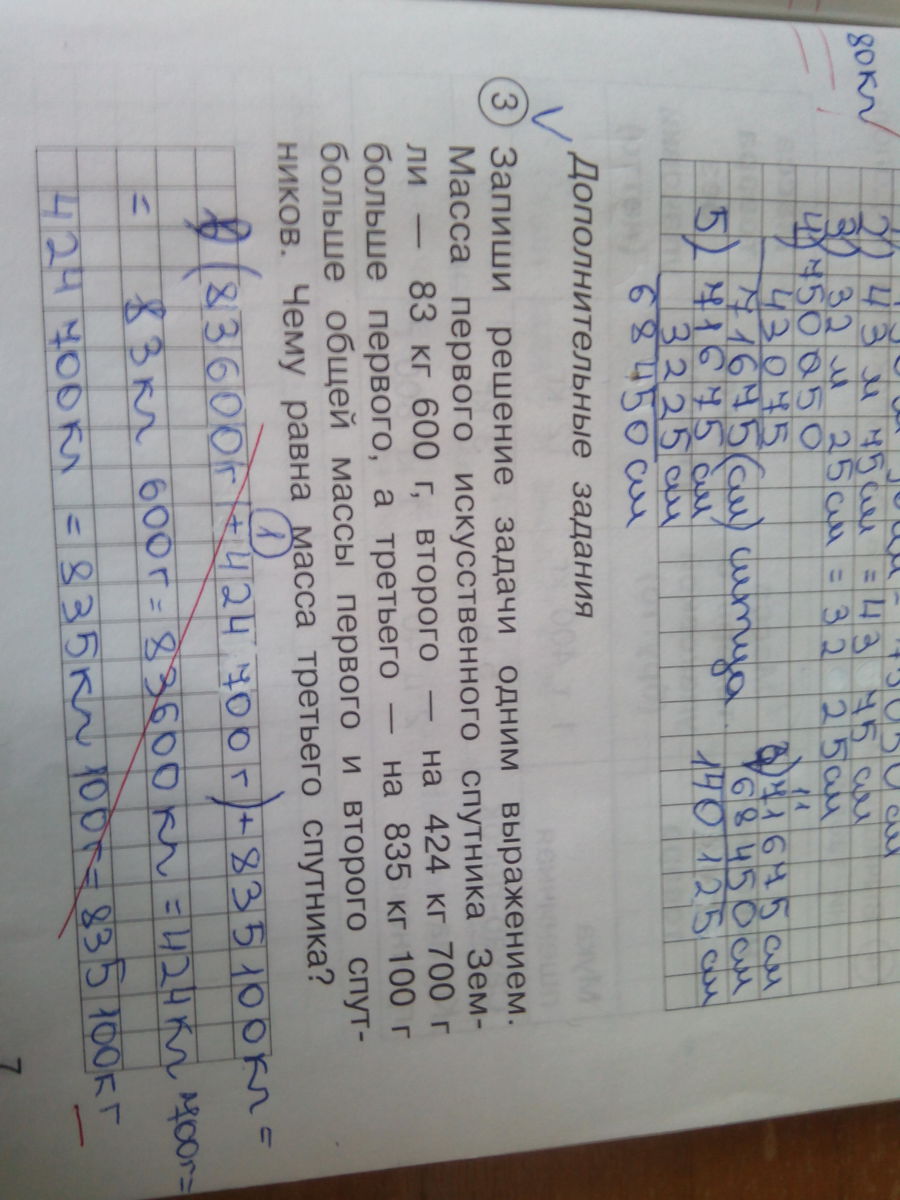 80кг
2) 43 м 75см = 43 75 см
3) 32 м 25см = 32 25см
4) 750050
43075
71675(см) ситца
5) 71675см
3225см
68450см
6) 71675см
68450см
140125см
Дополнительные задания
3 Запиши решение задачи одним выражением.
Масса первого искусственного спутника Зем-
ли — 83 кг 600 г, второго — на 424 кг 700 г
больше первого, а третьего — на 835 кг 100 г
больше общей массы первого и второго спут-
ников. Чему равна масса третьего спутника?
1
(83600г + 424 700 г) + 835100кг =
= 83кг 600г = 83600кг = 424кг 700г=
424 700кг = 835кг 100г= 835 100кг
7